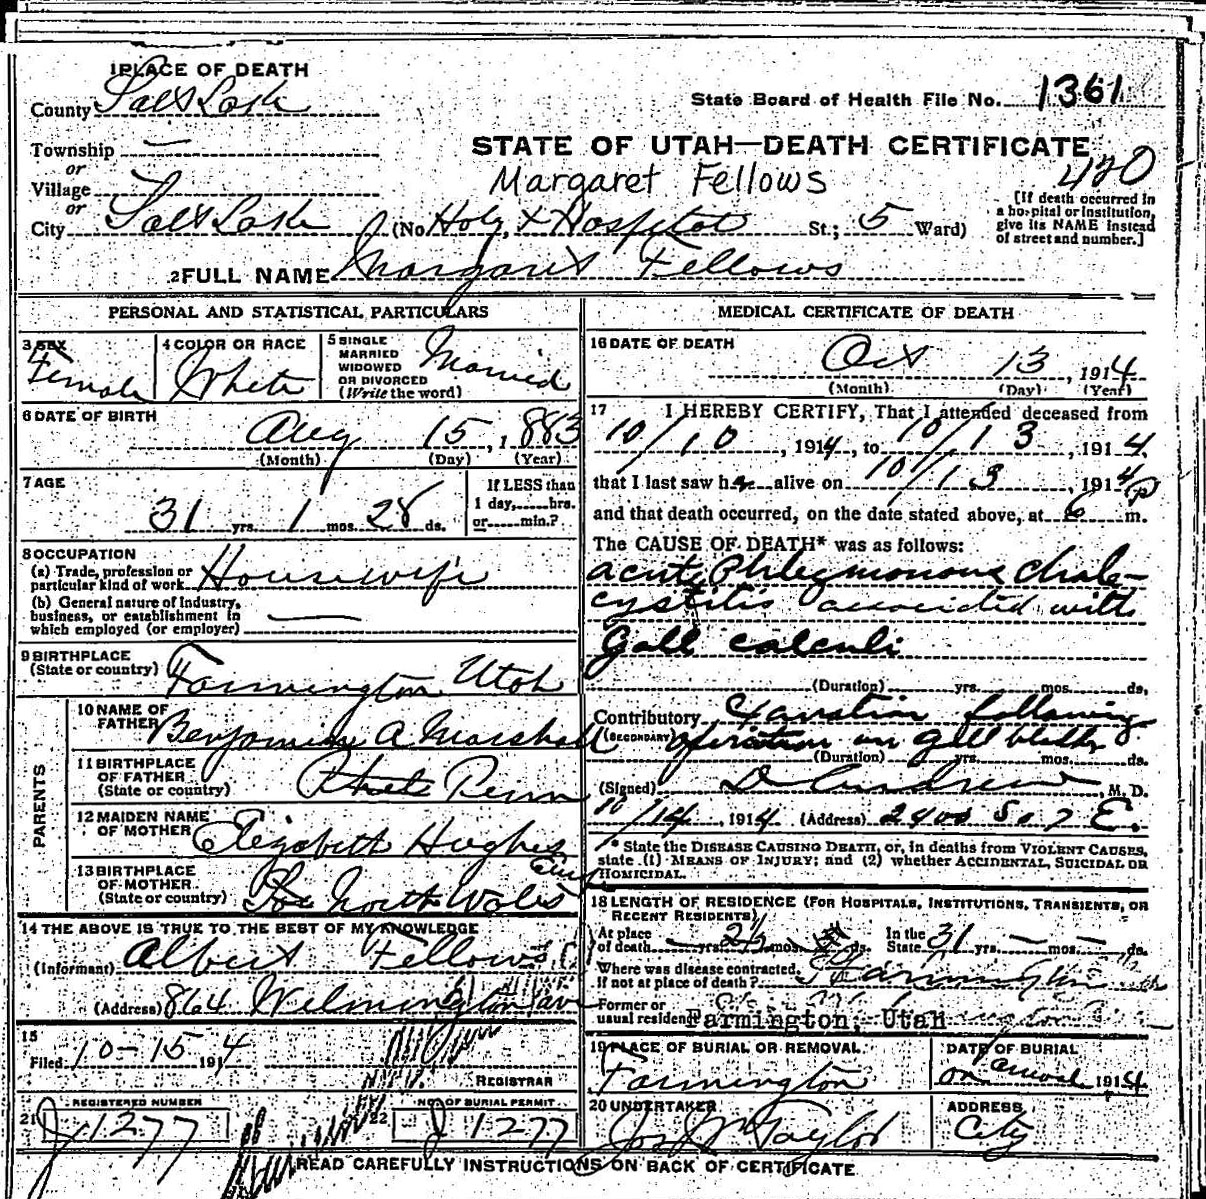 1 PLACE OF DEATH
County Salt Lake
State Board of Health File No. 1361
Township —
or
Village
or
City Salt Lake
STATE OF UTAH—DEATH CERTIFICATE
Margaret Fellows
420
(No. Holy + Hospital St.; 5 Ward)
[If death occurred in a hospital or institution, give its NAME instead of street and number.]
2 FULL NAME Margaret Fellows
PERSONAL AND STATISTICAL PARTICULARS
3 SEX Female
4 COLOR OR RACE White
5 SINGLE MARRIED WIDOWED OR DIVORCED (Write the word) Married
6 DATE OF BIRTH
Aug 15, 1883
(Month) (Day) (Year)
7 AGE
31 yrs. 1 mos. 28 ds.
If LESS than 1 day, hrs. or min.?
8 OCCUPATION
(a) Trade, profession or particular kind of work Housewife
(b) General nature of industry, business, or establishment in which employed (or employer) —
9 BIRTHPLACE
(State or country) Farmington Utah
PARENTS
10 NAME OF FATHER Benjamin A Marshall
11 BIRTHPLACE OF FATHER (State or country) Penn
12 MAIDEN NAME OF MOTHER Elizabeth Hughes
13 BIRTHPLACE OF MOTHER (State or country) North Wales
14 THE ABOVE IS TRUE TO THE BEST OF MY KNOWLEDGE
(Informant) Albert Fellows
(Address) 864 Wilmington ave
15
Filed 10-15 1914
REGISTRAR
REGISTERED NUMBER
21 J 1277
NO. OF BURIAL PERMIT
22 J 1277
MEDICAL CERTIFICATE OF DEATH
16 DATE OF DEATH
Oct 13, 1914
(Month) (Day) (Year)
17 I HEREBY CERTIFY, That I attended deceased from
10/10, 1914, to 10/13, 1914,
that I last saw her alive on 10/13, 1914
and that death occurred, on the date stated above, at 6 P m.
The CAUSE OF DEATH* was as follows:
acute Phlegmonous Chole-
cystitis associated with
Gall calculi
(Duration) yrs. mos. ds.
Contributory following
(SECONDARY) operation on gall bladder
(Duration) yrs. mos. ds.
(Signed) M. D.
10/14, 1914 (Address) 2400 So 7 E.
* State the DISEASE CAUSING DEATH, or, in deaths from VIOLENT CAUSES, state (1) MEANS OF INJURY; and (2) whether ACCIDENTAL, SUICIDAL OR HOMICIDAL.
18 LENGTH OF RESIDENCE (FOR HOSPITALS, INSTITUTIONS, TRANSIENTS, OR RECENT RESIDENTS)
At place of death yrs. mos. ds. In the State 31 yrs. — mos. — ds.
Where was disease contracted, if not at place of death? Farmington
Former or usual residence Farmington, Utah
19 PLACE OF BURIAL OR REMOVAL
Farmington
DATE OF BURIAL
1914
20 UNDERTAKER
Jos Wm Taylor
ADDRESS
City
READ CAREFULLY INSTRUCTIONS ON BACK OF CERTIFICATE